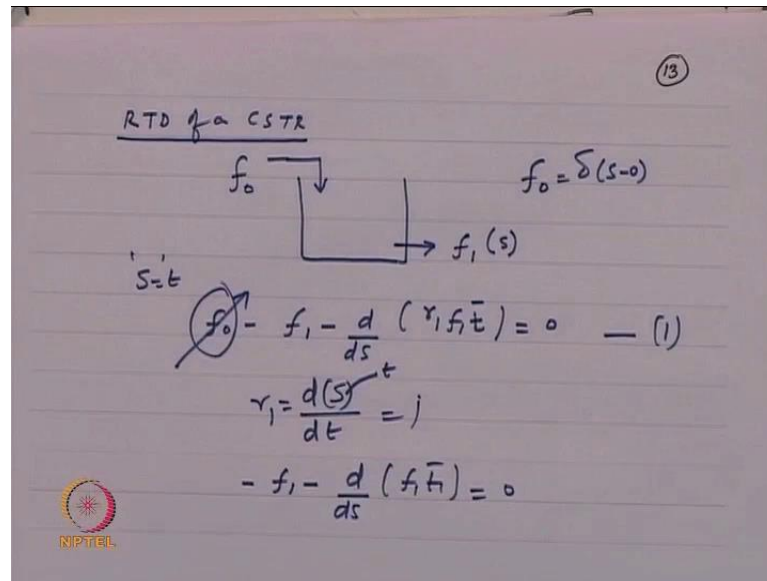 13
RTD of a CSTR
f₀
f₀ = δ(s-0)
f₁(s)
's=t'
f₀ - f₁ - d/ds (r₁ f₁ t̄) = 0 — (1)
r₁ = d(s)/dt = 1
t
- f₁ - d/ds (f₁ t̄₁) = 0
NPTEL